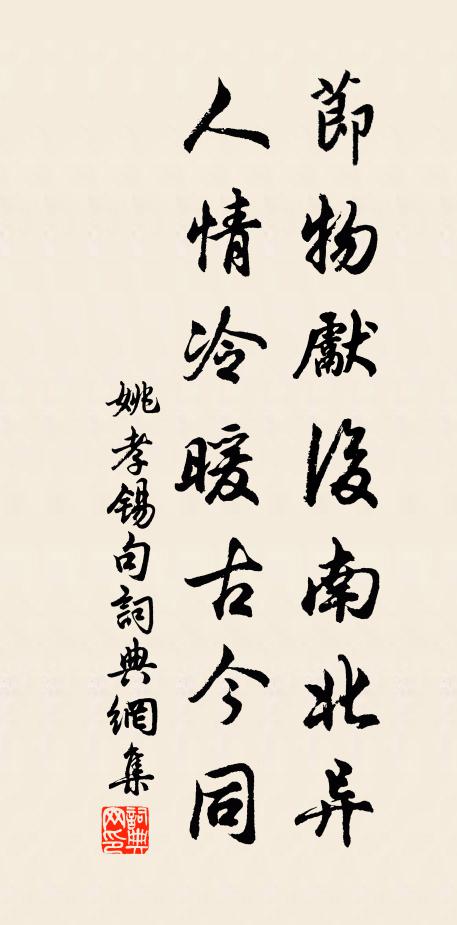 節物獻後南北异
人情冷暖古今同
姚孝錫句詞典網集
詞典網印